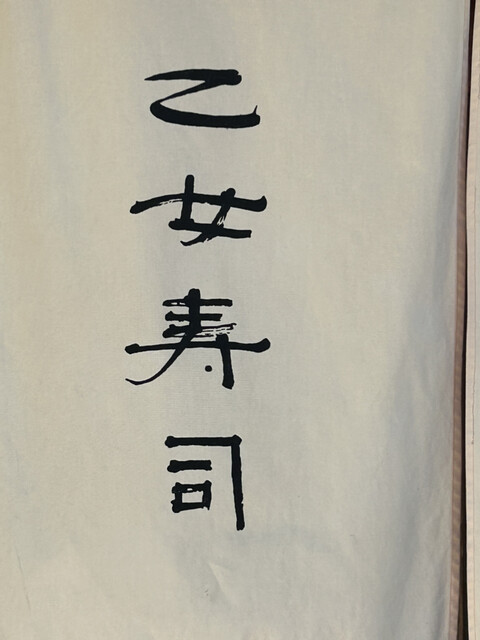 乙女寿司